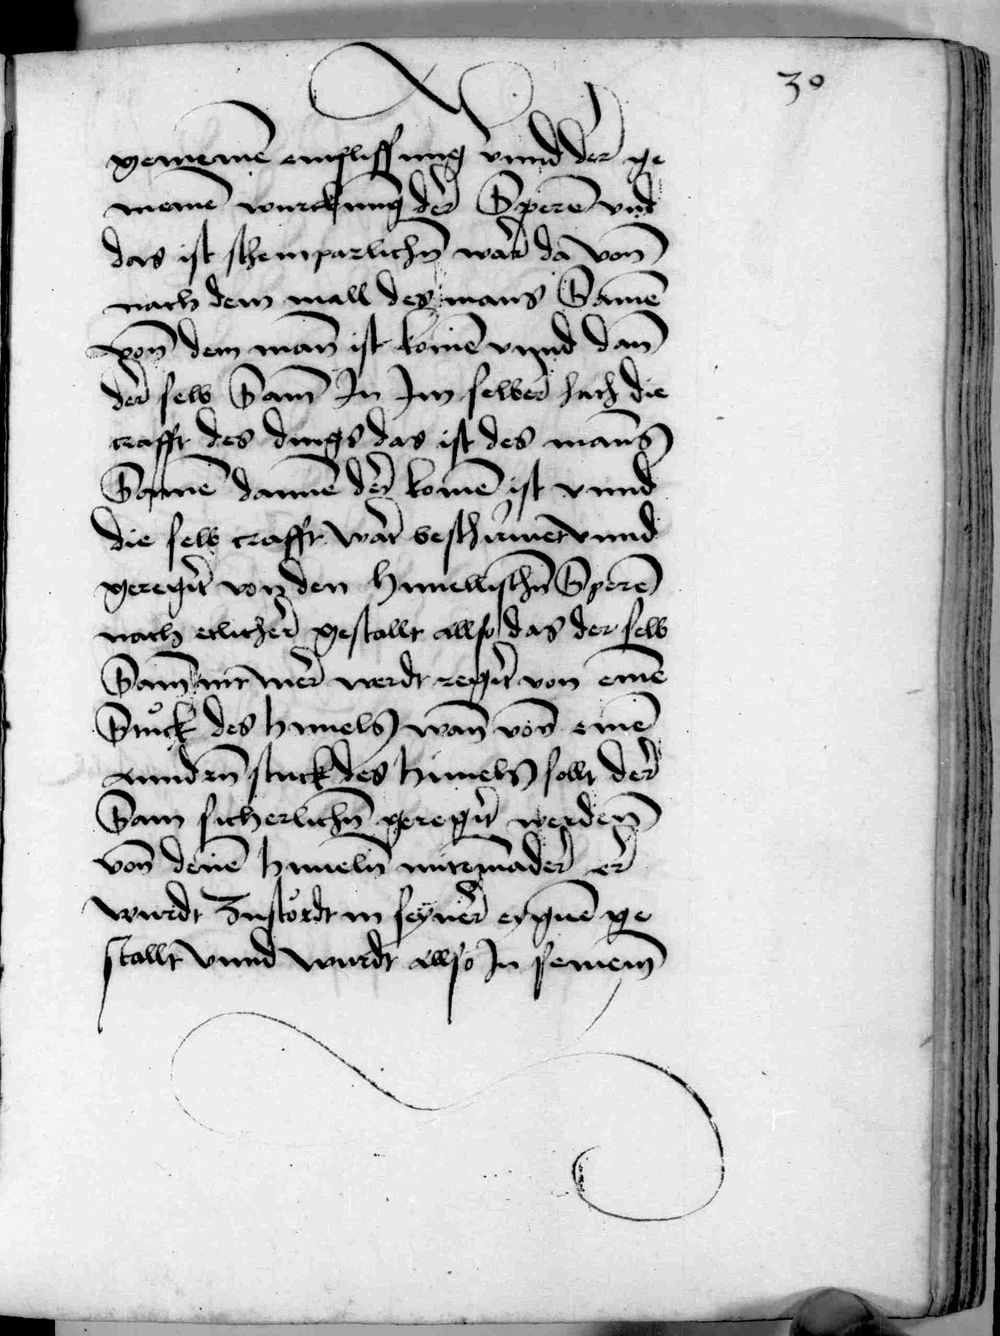 30
gemeinē einflissung vnnd der ge
meinē wurckung der Sperē vnd
das ist scheinparlichn̄ war da von̄
nach dem mall des mans Samē
von̄ dem man̄ ist komē vnnd dan̄
der selb Sam̄ In Im selber hatt die
crafft des dings das ist des man̄s
Samē dannē der komē ist vnnd
die selb crafft wirt beschirmet vnnd
geregirt von den himelischn̄ Sperē
nach etlicher gestallt allso das der selb
Sam̄ nit mer werdt regirt von einē
Stuck des himels wan̄ von einē
anndrn̄ stuck des himels sollt der
Sam sicherlichn̄ geregirt werdenn̄
von̄ denē himeln̄ miteinnader er
wurdt Zustördt in seyner eygnē ge
stallt vnnd wurdt allso In seinem̄